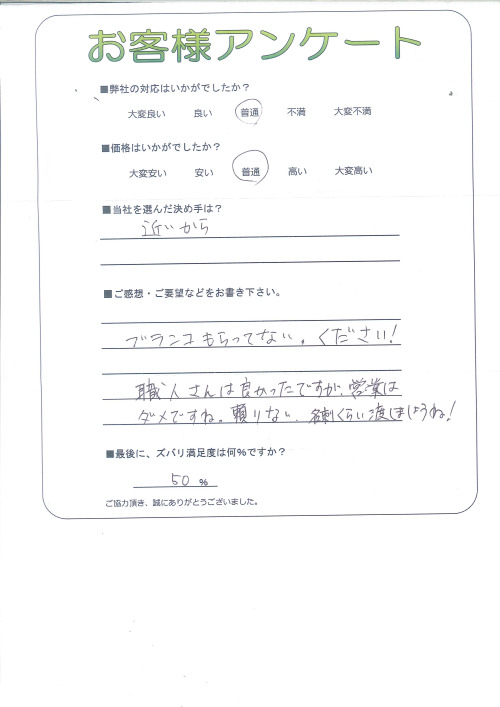 お客様アンケート
■弊社の対応はいかがでしたか?
大変良い 良い 普通 不満 大変不満
■価格はいかがでしたか?
大変安い 安い 普通 高い 大変高い
■当社を選んだ決め手は?
近いから
■ご感想・ご要望などをお書き下さい。
ブランコもらってない。ください!
職人さんは良かったですが、営業は
ダメですね。頼りない、名刺くらい渡しましょうね!
■最後に、ズバリ満足度は何%ですか?
50 %
ご協力頂き、誠にありがとうございました。